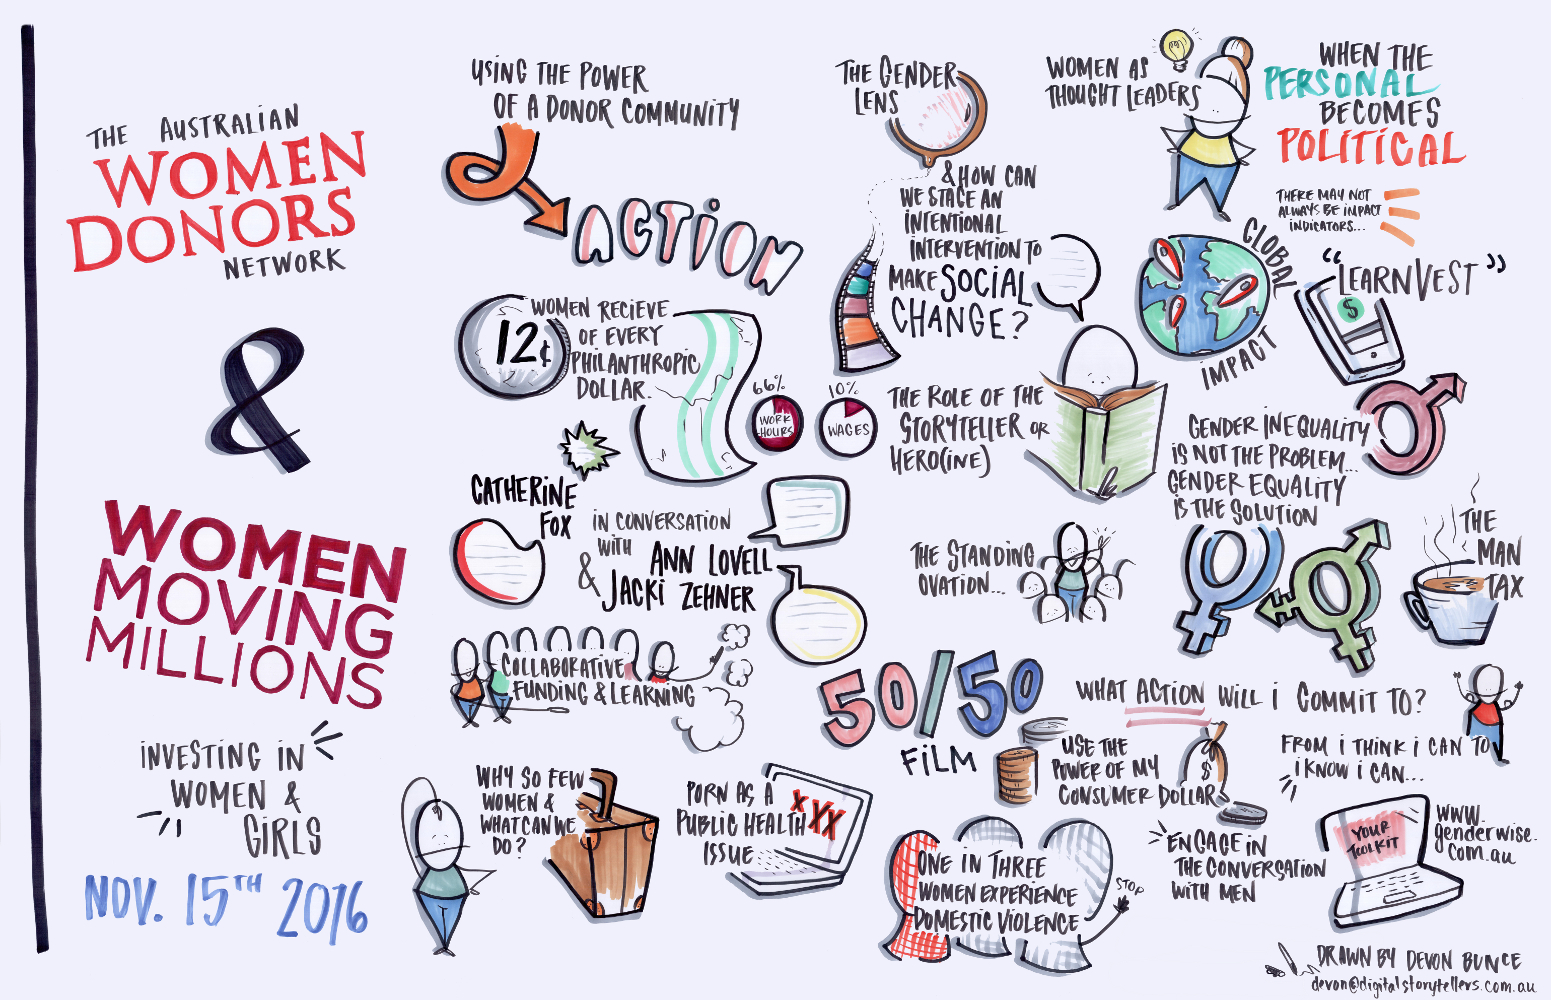 THE AUSTRALIAN
WOMEN
DONORS
NETWORK
&
WOMEN
MOVING
MILLIONS
INVESTING IN
WOMEN &
GIRLS
NOV. 15TH 2016
USING THE POWER
OF A DONOR COMMUNITY
ACTION
12¢
WOMEN RECIEVE
OF EVERY
PHILANTHROPIC
DOLLAR.
66%
WORK
HOURS
10%
WAGES
CATHERINE
FOX
IN CONVERSATION
WITH
ANN LOVELL
& JACKI ZEHNER
COLLABORATIVE
FUNDING & LEARNING
WHY SO FEW
WOMEN &
WHAT CAN WE
DO?
PORN AS A
PUBLIC HEALTH
ISSUE
XXX
THE GENDER
LENS
& HOW CAN
WE STAGE AN
INTENTIONAL
INTERVENTION TO
MAKE SOCIAL
CHANGE?
THE ROLE OF THE
STORYTELLER OR
HERO(INE)
THE STANDING
OVATION...
50/50
FILM
USE THE
POWER OF MY
CONSUMER DOLLAR
$
ONE IN THREE
WOMEN EXPERIENCE
DOMESTIC VIOLENCE
STOP
WOMEN AS
THOUGHT LEADERS
WHEN THE
PERSONAL
BECOMES
POLITICAL
THERE MAY NOT
ALWAYS BE IMPACT
INDICATORS...
GLOBAL
IMPACT
"LEARNVEST"
$
GENDER INEQUALITY
IS NOT THE PROBLEM...
GENDER EQUALITY
IS THE SOLUTION
THE
MAN
TAX
WHAT ACTION WILL I COMMIT TO?
FROM I THINK I CAN TO
I KNOW I CAN...
ENGAGE IN
THE CONVERSATION
WITH MEN
YOUR
TOOLKIT
www.
genderwise.
com.au
DRAWN BY DEVON BUNCE
devon@digitalstorytellers.com.au